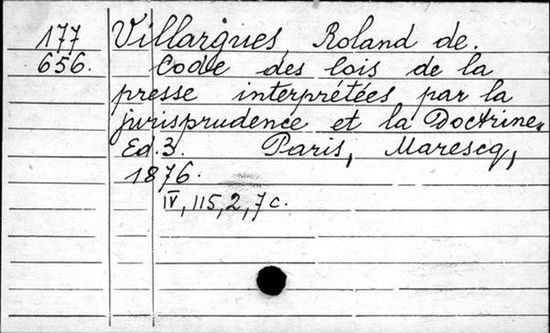 177 Villargues, Roland de.
656. Code des lois de la
presse interprétées par la
jurisprudence et la Doctrine.
Ed. 3. Paris, Marescq,
1876.
IV, 115, 2, 7 c.